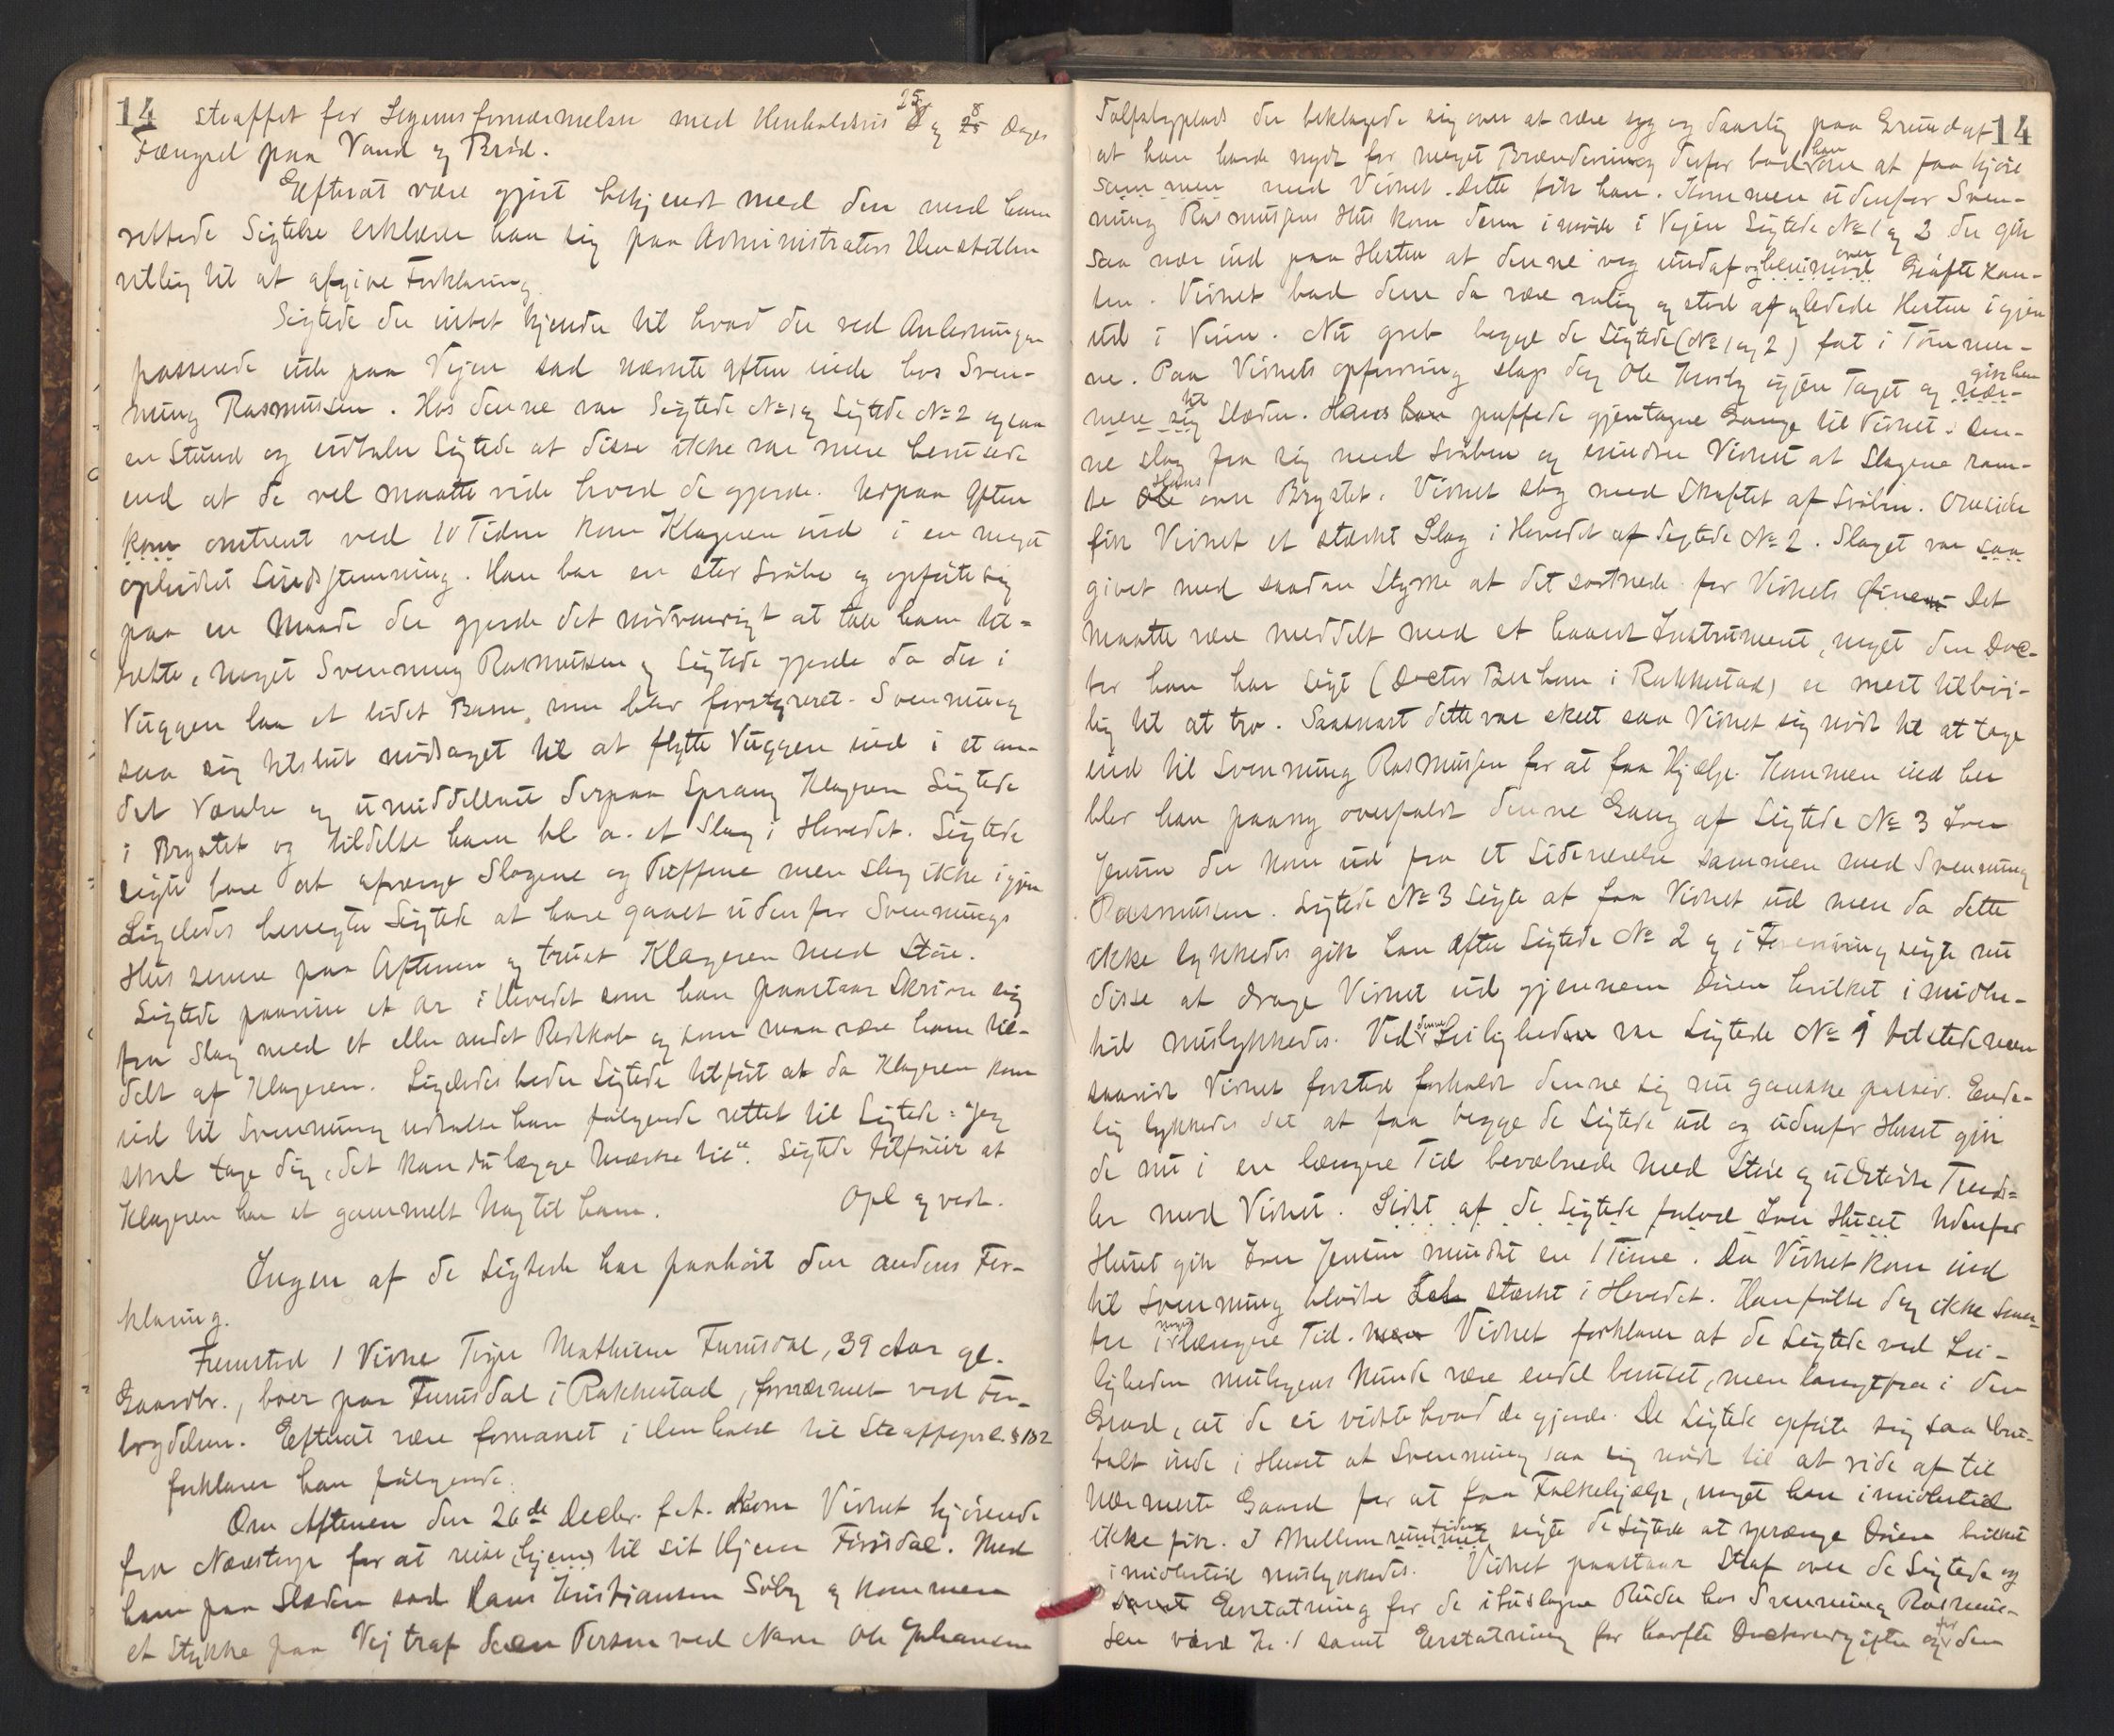 14 straffet for Legemsfornærmelse med Henholdsvis 25 og 8 Dages
Fængsel paa Vand og Brød.
Efterat være gjort bekjendt med den mod ham
rettede Sigtelse erklærer han sig paa Administrators Henstillen
villig til at afgive Forklaring.
Sigtede der intet kjender til hvad der ved Anledningen
passerede ude paa Vejen sad nævnte Aften inde hos Sven-
ning Rasmussen. Hos denne var Sigtede No 1 og Sigtede No 2 ogsaa
en Stund og udtaler Sigtede at disse ikke var mere berusede
end at de vel maatte vide hvad de gjorde. Udpaa Aften
kom omtrent ved 10 Tiden kom Klageren ind i en meget
ophidset Sindsstemning. Han bar en stor Svøbe og opførte sig
paa en Maade der gjorde det nødvendigt at tale ham til-
rette, noget Svenning Rasmussen og Sigtede gjorde da der i
Vuggen laa et lidet Barn, som blev forstyrret. Svenning
saa sig tilslut nødsaget til at flytte Vuggen ind i et an-
det Værelse og umiddelbart derpaa sprang Klageren Sigtede
i Brystet og tildelte ham bl. a. et Slag i Hovedet. Sigtede
søgte bare at afværge Slagene og Puffene men slog ikke igjen
Ligeledes benegter Sigtede at have gaaet udenfor Svennings
Hus senere paa Aftenen og truet Klageren med Støir.
Sigtede paaviser et Ar i Hovedet som han paastaar skrive sig
fra Slag med et eller andet Redskab og som maa være ham til-
delt af Klageren. Ligeledes beder Sigtede tilført at da Klageren kom
ind til Svenning udtalte han følgende rettet til Sigtede: "Jeg
skal tage dig, det kan du lægge Mærke til". Sigtede tilføier at
Klageren har et gammelt Nag til ham. Opl og vedt.
Ingen af de Sigtede har paahørt den andens For-
klaring.
Fremstod 1 Vidne Mathisen Furusdal, 39 Aar gl.
Gaardbr., boer paa Furusdal i Rakkestad, fornærmet ved For-
brydelsen. Efterat være formanet i Henhold til Straffeprl. §
forklarer han følgende:
Om Aftenen den 26de Decbr. f. A. kom Vidnet kjørende
fra for at reise hjem til sit Hjem Furusdal. Med
ham paa Slæden sad Hans Kristiansen Søby og kommen
et Stykke paa Vej traf de en Person ved Navn Ole Johansen
14
der beklagede sig over at være syg og daarlig paa Grund af
at han havde nydt for meget Brændevin og derfor bad han om at faa kjøre
sammen med Vidnet. Dette fik han. Kommen udenfor Sven-
ning Rasmussens Hus kom dem i møde i Vejen Sigtede No 1 og 2 der gik
saa nær ind paa Hesten at denne veg undaf og over Grøftekan-
ten. Vidnet bad dem da være rolig og stod af og ledede Hesten igjen
ud i Veien. Nu greb begge de Sigtede (No 1 og 2) fat i Tømmer-
ne. Paa Vidnets opfordring slap dog Ole igjen Taget og gik han nær-
mere til Slæden. Hans puffede gjentagne Gange til Vidnet. Den-
ne slog fra sig med Svøben og erindrer Vidnet at Slagene ram-
te Hans over Brystet. Vidnet slog med Skaftet af Svøben. Omsider
fik Vidnet et stærkt Slag i Hovedet af Sigtede No 2. Slaget var saa
givet med saadan Styrke at det sortnede for Vidnets Øine. Det
maatte være meddelt med et haardt Instrument, noget den Doc-
tor han har søgt (Doctor i Rakkestad) er mest tilbøi-
lig til at tro. Saasnart dette var skeet saa Vidnet sig nødt til at tage
ind til Svenning Rasmussen for at faa Hjælp. Kommen ind her
blev han paany overfaldt denne Gang af Sigtede No 3 Iver
Jensen der kom ud fra et Sideværelse sammen med Svenning
Rasmussen. Sigtede No 3 søgte at faa Vidnet ud men da dette
ikke lykkedes gik han efter Sigtede No 2 og i Forening søgte nu
disse at drage Vidnet ud gjennem Døren hvilket imidler-
tid mislykkedes. Ved denne Leilighed var Sigtede No 1 tilstede men
saavidt Vidnet forstod forholdt denne sig nu ganske passiv. Ende-
lig lykkedes det at faa begge de Sigtede ud og udenfor Huset gik
de nu i en længere Tid bevæbnede med Støir og udstødte Trud-
ler mod Vidnet. Sidst af de Sigtede forlod Iver Huset. Udenfor
Huset gik Iver Jensen mindst en 1 Time. Da Vidnet kom ind
til Svenning blødte stærkt i Hovedet. Han følte dog ikke Smer-
ter i nogen længere Tid. Vidnet forklarer at de Sigtede ved Lei-
ligheden muligens kunde være endel beruset, men langtfra i den
Grad, at de ei vidste hvad de gjorde. De Sigtede opførte sig saa bru-
talt inde i Huset at Svenning saa sig nødt til at ride af til
nærmeste Gaard for at faa Folkehjælp, noget han imidlertid
ikke fik. I Mellemtiden søgte de Sigtede at sprænge Døren hvilket
imidlertid mislykkedes. Vidnet paastaar Straf over de Sigtede og
samt Erstatning for de ituslagne Ruder hos Svenning Rasmus-
sen værd Kr. 1 samt Erstatning for havte Doctorudgifter og for den